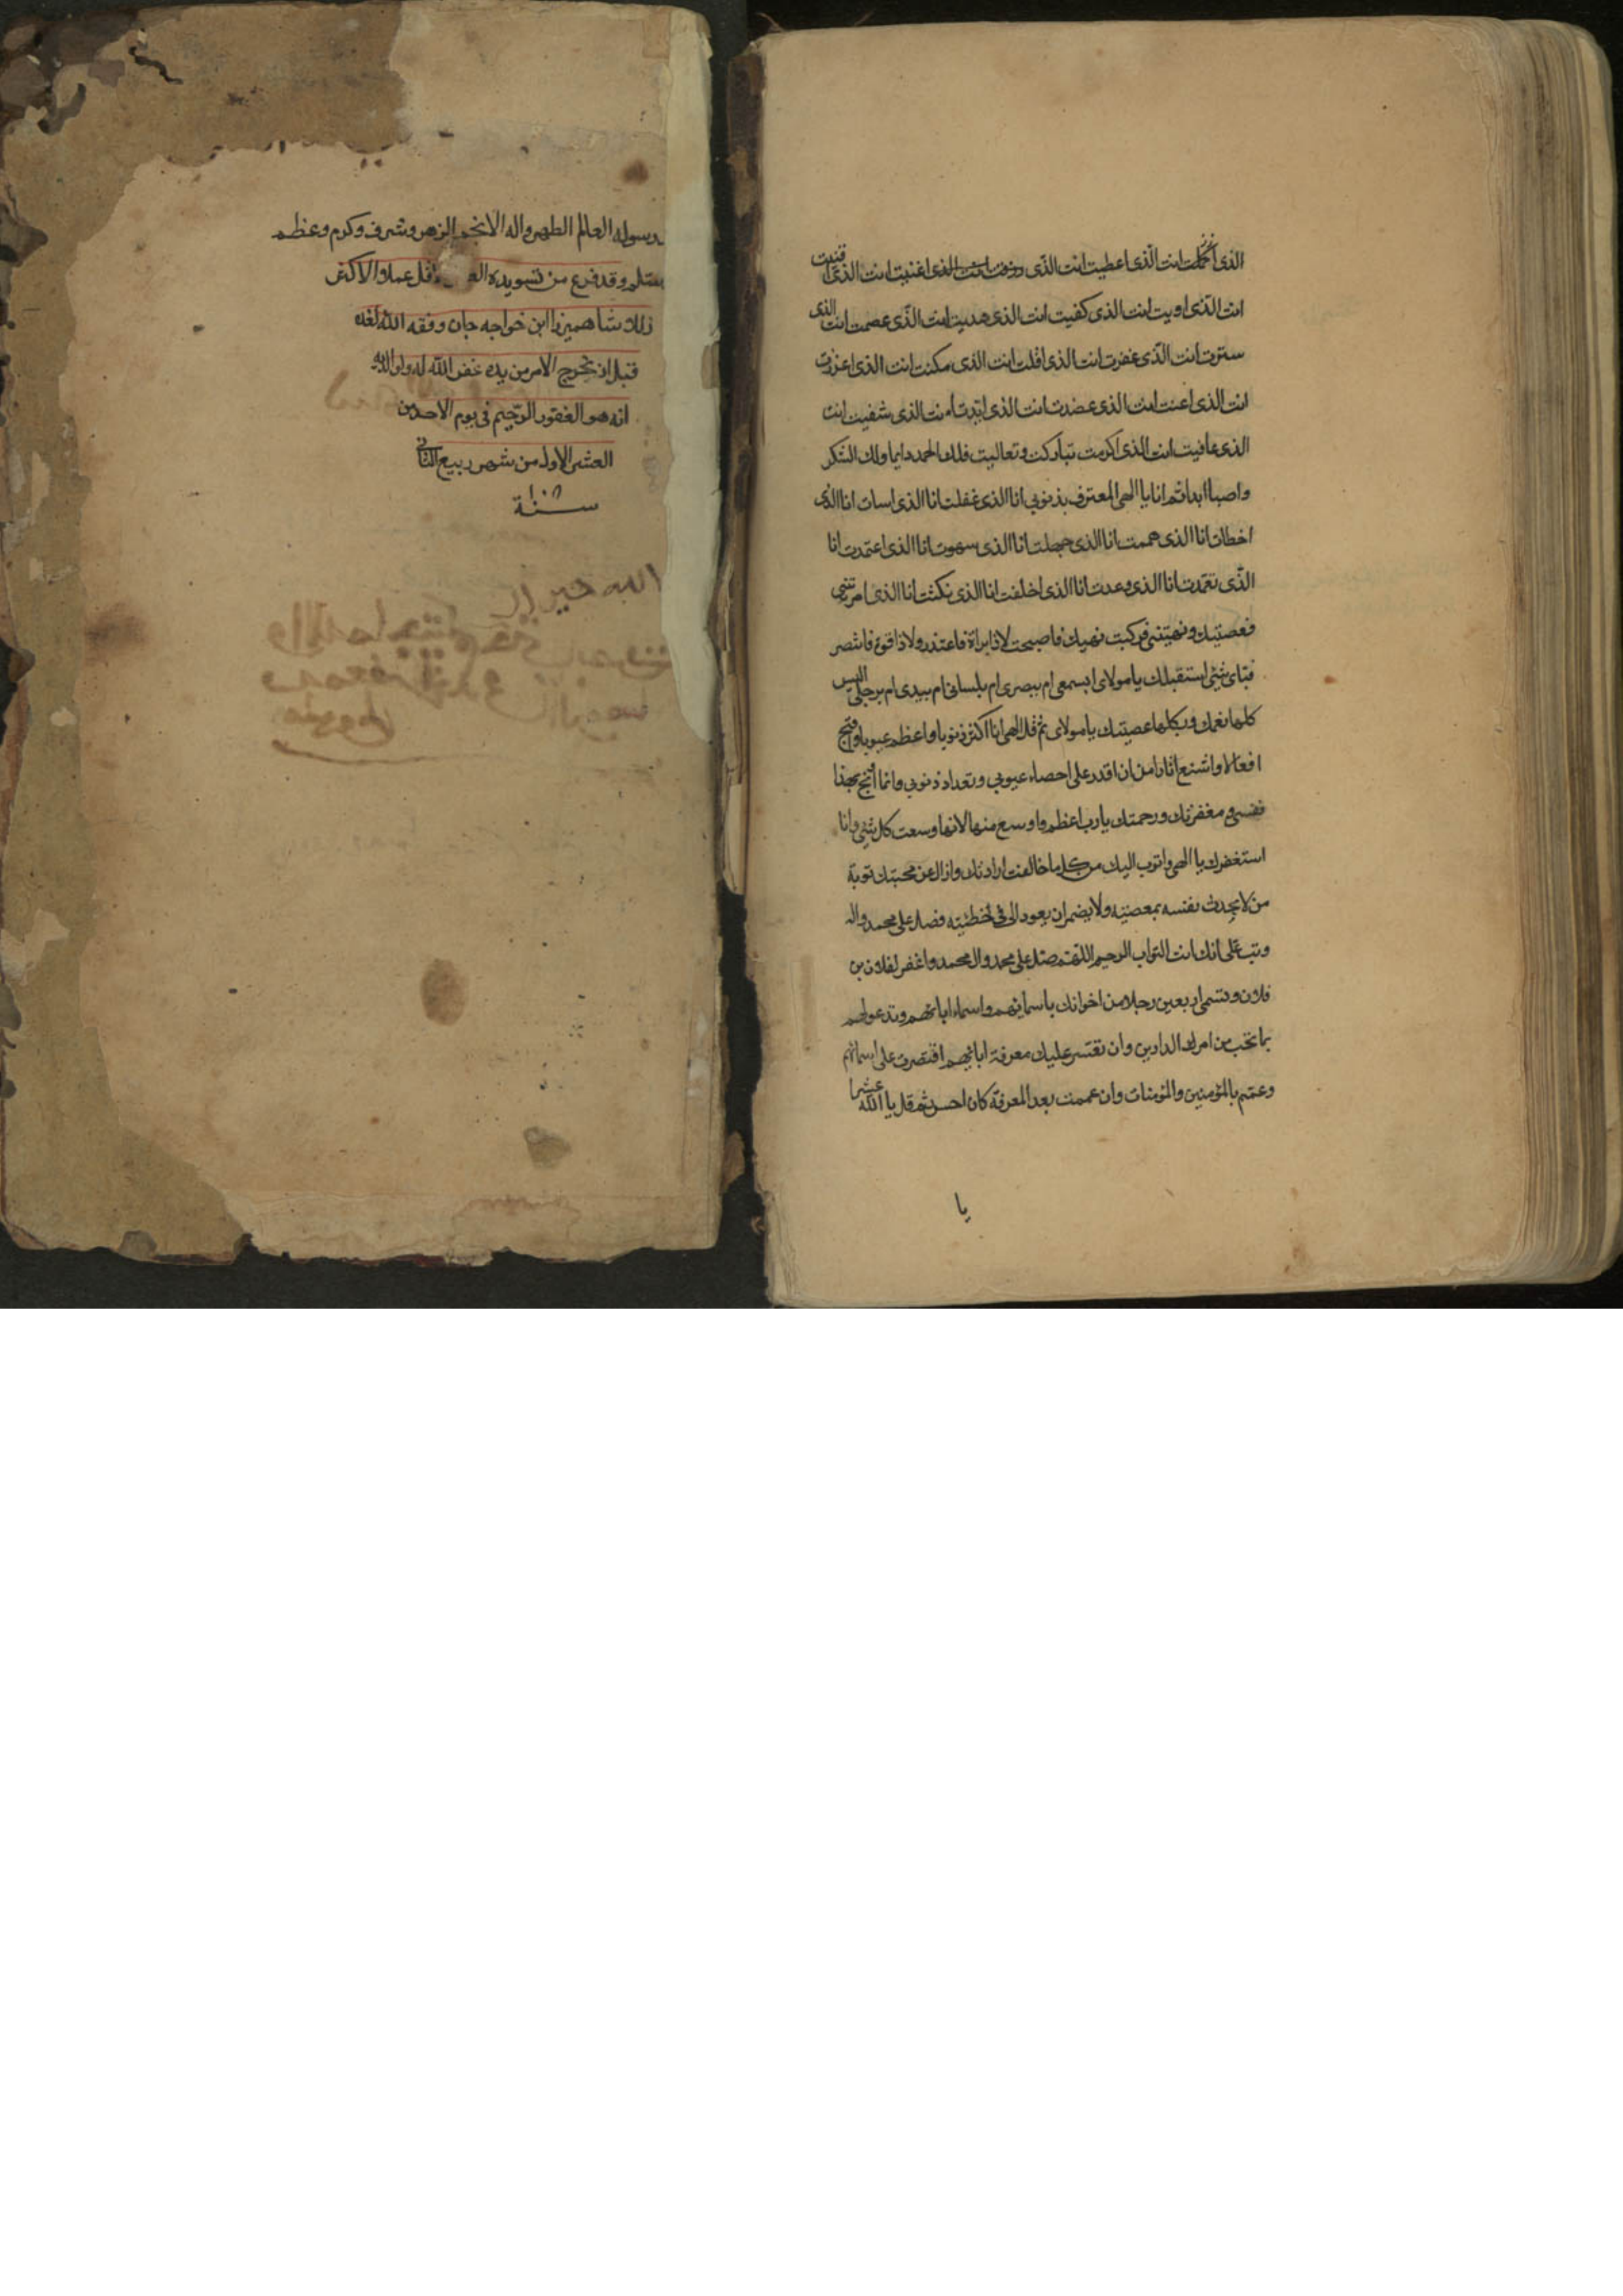 الذى اكملت انت الّذى اعطيت انت الذّى رزقت انت الذى اغنيت انت الذى اقنيت
انت الذّى اويت انت الذى كفيت انت الذى هديت انت الذّى عصمت انت الذى
سترت انت الذّى غفرت انت الذى اقلت انت الذى مكنت انت الذى اعززت
انت الذى اعنت انت الذى عضدت انت الذى ايّدت انت الذى شفيت انت
الذى عافيت انت الذى اكرمت تباركت وتعاليت فلك الحمد دايما ولك الشكر
واصبا ابدا ثم انا يا الهى المعترف بذنوبى انا الذى غفلت انا الذى اسات انا الذى
اخطات انا الذى هممت انا الذى جهلت انا الذى سهوت انا الذى اعتمدت انا
الذّى تعمّدت انا الذى وعدت انا الذى اخلفت انا الذى نكثت انا الذى امرتنى
فعصيتك ونهيتنى فركبت نهيك فاصبحت لاذا براة فاعتذر ولاذا قوة فانتصر
فباى شئى استقبلك يا مولاى ابسمعى ام ببصرى ام بلسانى ام بيدى ام برجلى اليس
كلها نعمك وبكلها عصيتك يا مولاى ثم قل الهى انا اكثر ذنوبا واعظم عيوبا واقبح
افعالا واشنع اثارا من ان اقدر على احصاء عيوبى وتعداد ذنوبى وانما اوبخ بهذا
نفسى ومغفرتك ورحمتك يا رب اعظم واوسع منها لانها وسعت كل شئى وانا
استغفرك يا الهى واتوب اليك من كل ما خالفت ارادتك وازال عن محبتك توبة
من لا يحدث نفسه بمعصيته ولا يضمر ان يعود الى فى خطئيته فصل على محمد واله
وتب علّى انك انت التواب الرحيم اللهّم صل على محمد وال محمد واغفر لفلان بن
فلان وتسمى اربعين رجلا من اخوانك باسمائهم واسماء ابائهم وتدعو لهم
بما تحب من امر الدارين وان تعتسر عليك معرفة ابائهم اقتصرت على اسمائهم
وعمّم بالمؤمنين والمؤمنات وان عممت بعد المعرفة كان احسن ثم قل يا الله عشرا
يا
رسوله العالم الطهر واله الانجم الزهر وشرف وكرم وعظم
وسلم وقد فرغ من تسويده اقل عملا والاكثر
زللا شاهميرزا ابن خواجه جان وفقه الله لغده
قبل ان يخرج الامر من يده غفر الله له ولوالديه
انه هو الغفور الرّحيم فى يوم الاحد من
العشر الاول من شهر ربيع الثانى
سنة
الله خير